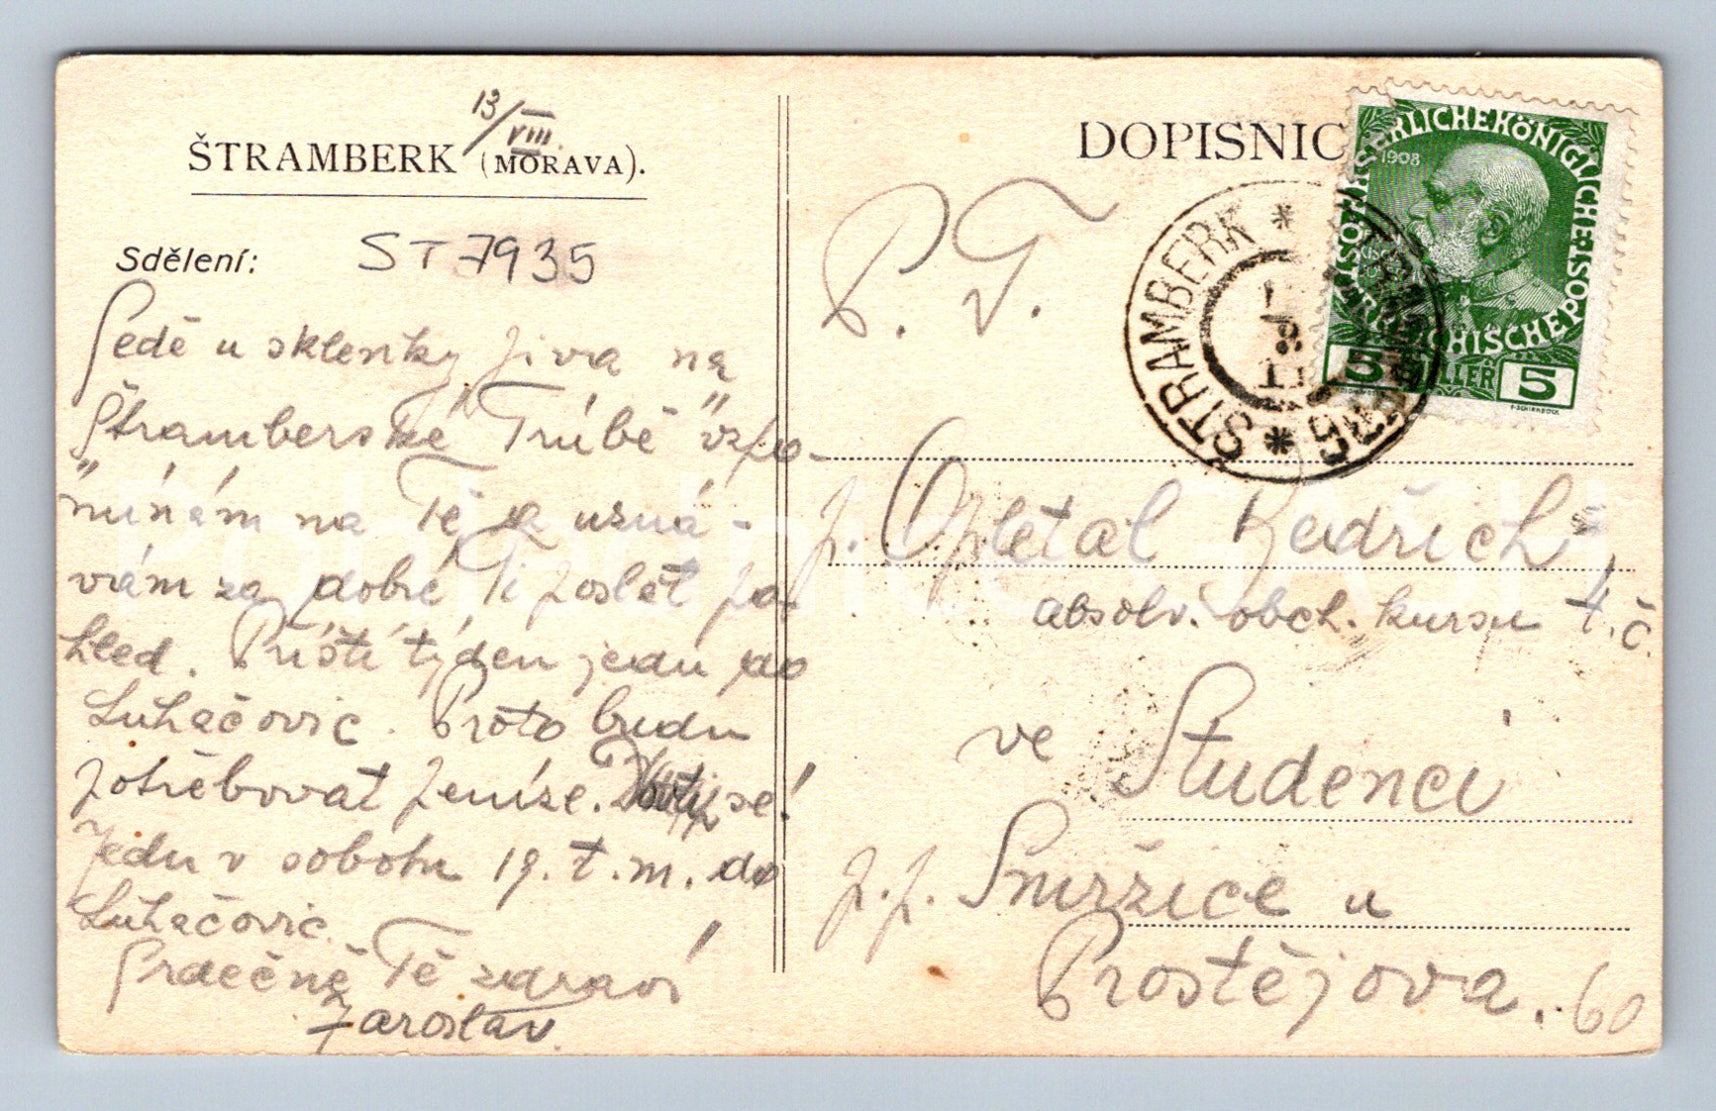 13/VIII.
ŠTRAMBERK (MORAVA).
Sdělení:
ST7935
Sedě u sklenky piva na
Štramberské "Trúbě" vzpo-
mínám na Tě a uzná-
vám za dobré Ti poslat po-
hled. Příští týden jedu do
Luhačovic. Proto budu
potřebovat peníze. se!
Jedu v sobotu 19. t. m. do
Luhačovic.
Srdečně Tě zdraví
Jaroslav.
DOPISNIC
1908
KAISERLICHEKÖNIGLICHE
ÖSTERREICHISCHEPOST
5 HELLER 5
ŠTRAMBERK * STRAMBERG *
P. T.
p. Opletal Bedřich
absolv. obch. kursu t. č.
ve Studenci
p. p. Smržice u
Prostějova.
60